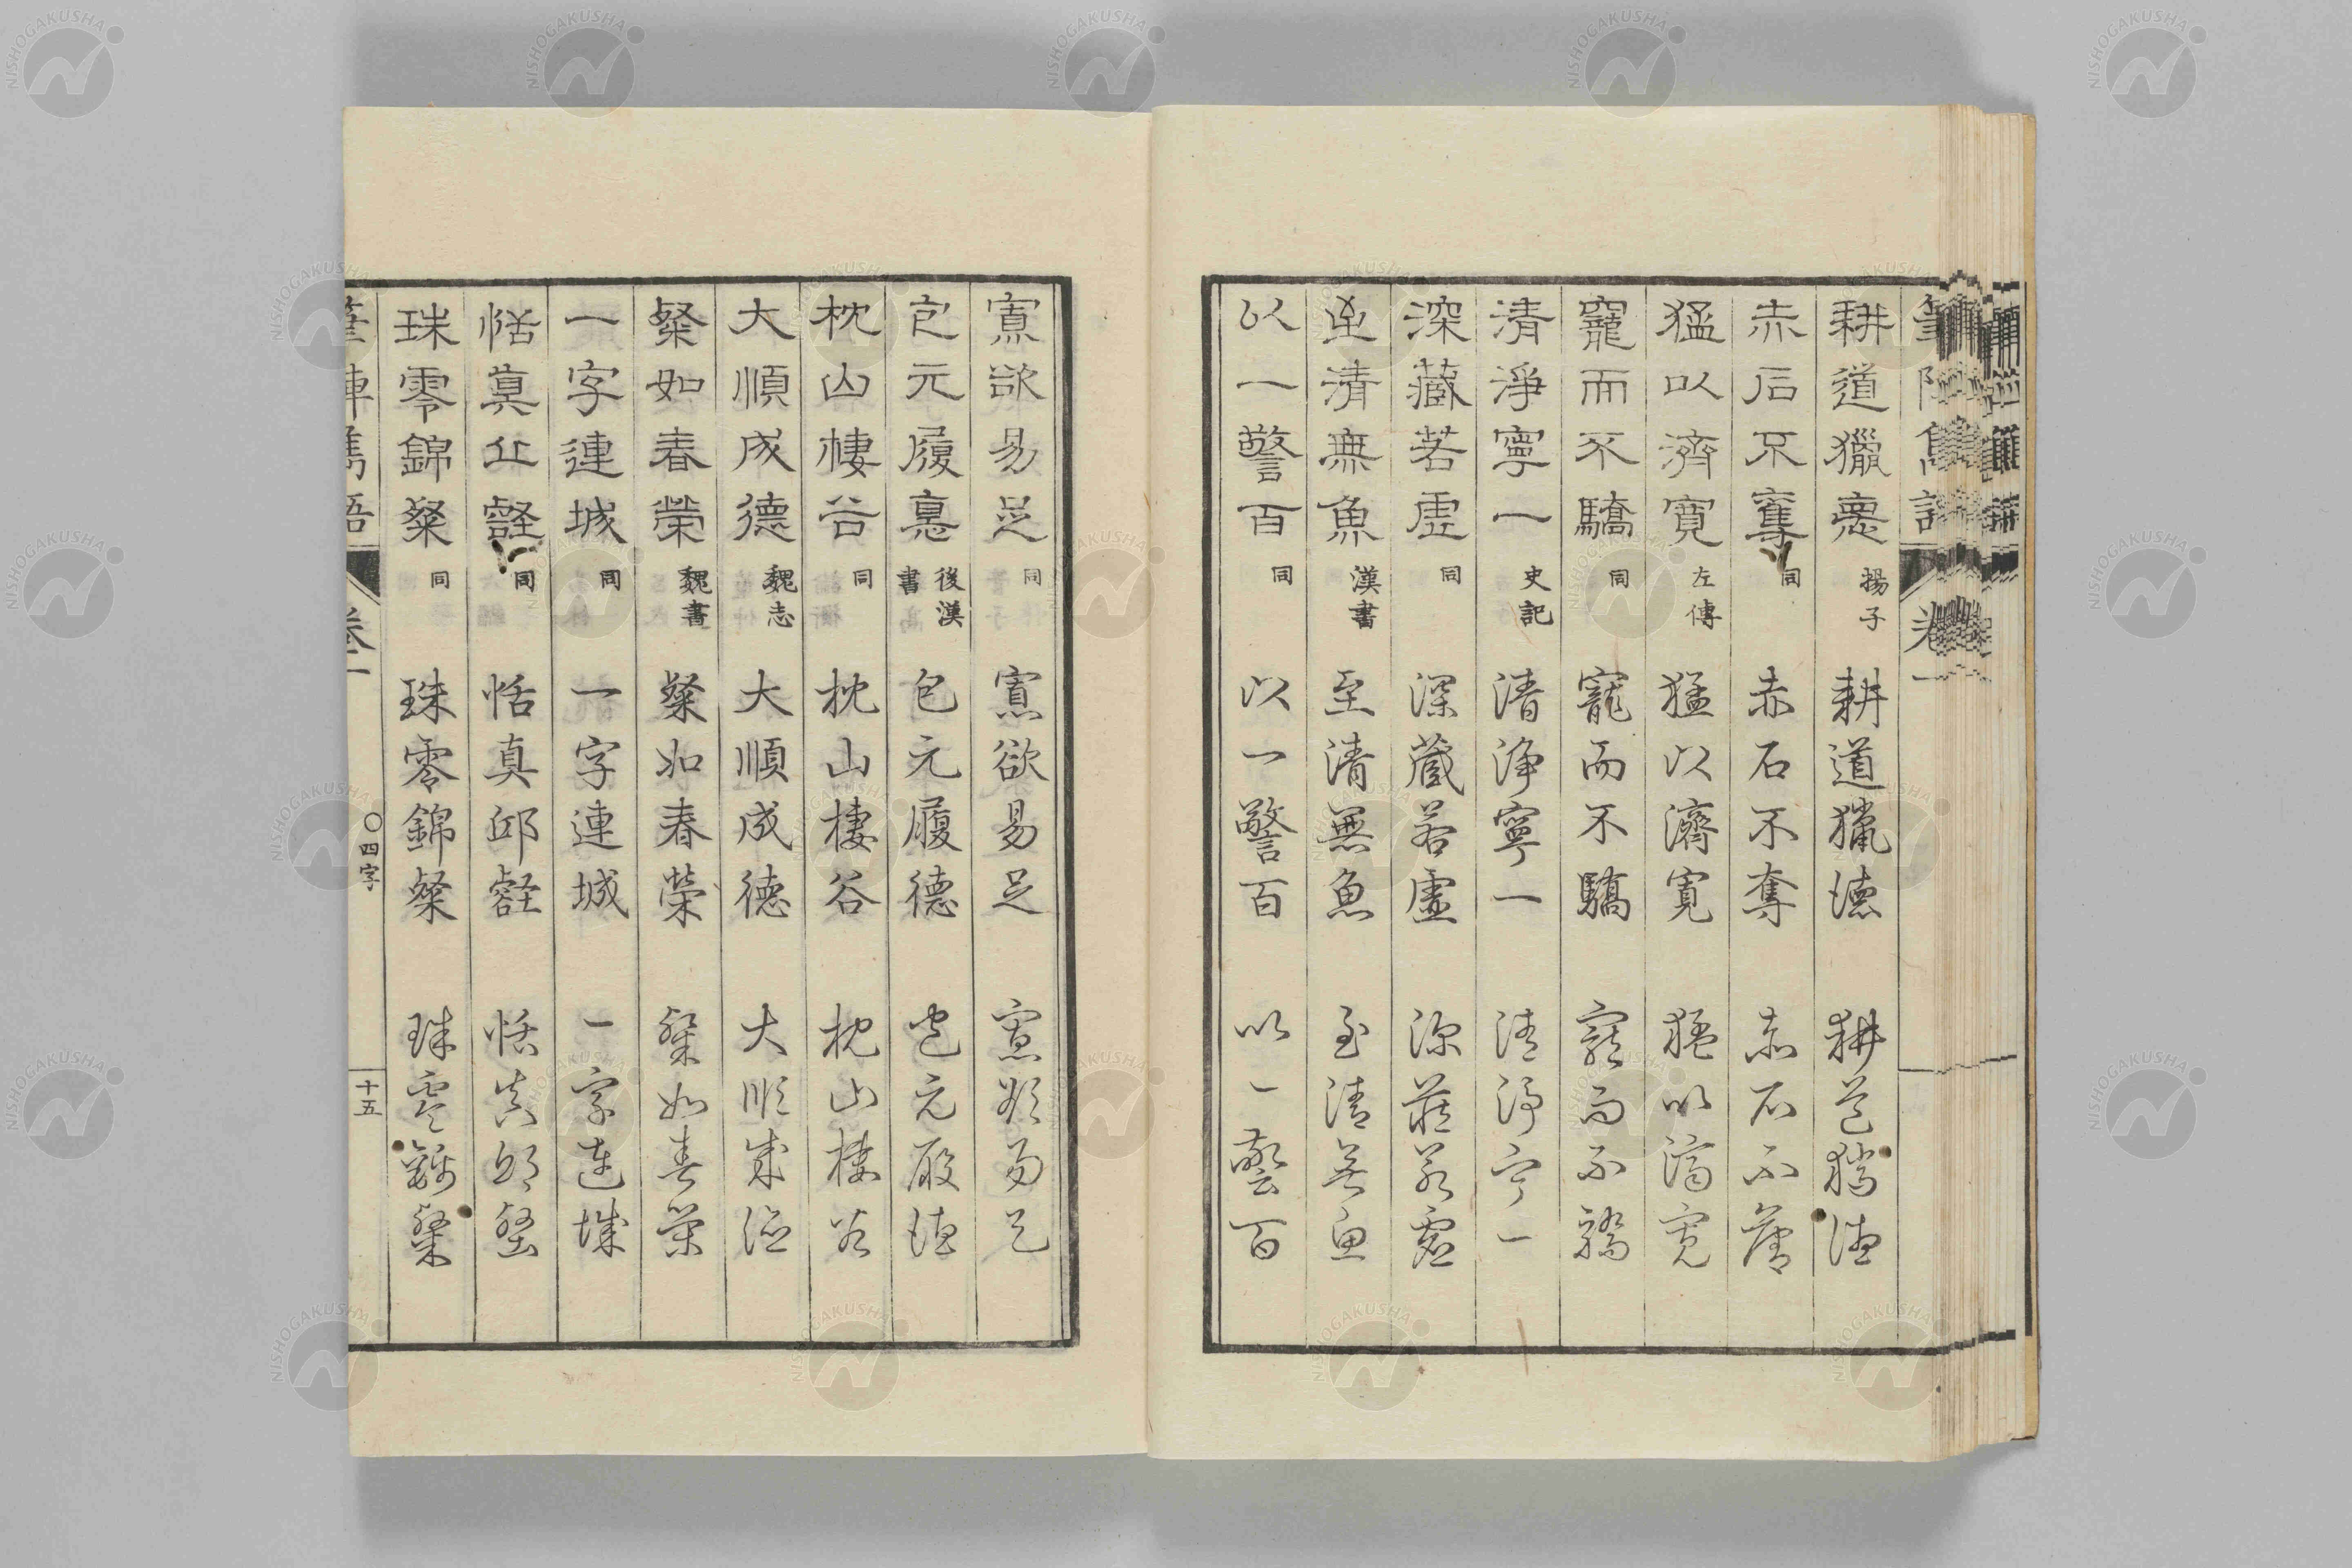 耕道獵悳 揚子 耕道獵徳 耕道獵徳
赤石不奪 同 赤石不奪 赤石不奪
猛以濟寛 左傳 猛以濟寛 猛以濟寛
寵而不驕 同 寵而不驕 寵而不驕
清淨寧一 史記 清浄寧一 清浄寧一
深藏若虛 同 深蔵若虚 深蔵若虚
至清無魚 漢書 至清無魚 至清無魚
以一警百 同 以一警百 以一警百
寡欲易足 同 寡欲易足 寡欲易足
包元履悳 後漢書 包元履徳 包元履徳
枕山棲谷 同 枕山棲谷 枕山棲谷
大順成德 魏志 大順成徳 大順成徳
粲如春榮 魏書 粲如春榮 粲如春榮
一字連城 同 一字連城 一字連城
恬眞丠壑 同 恬真邱壑 恬真邱壑
珠零錦粲 同 珠零錦粲 珠零錦粲
卷一 〇四字 十五
NISHOGAKUSHA